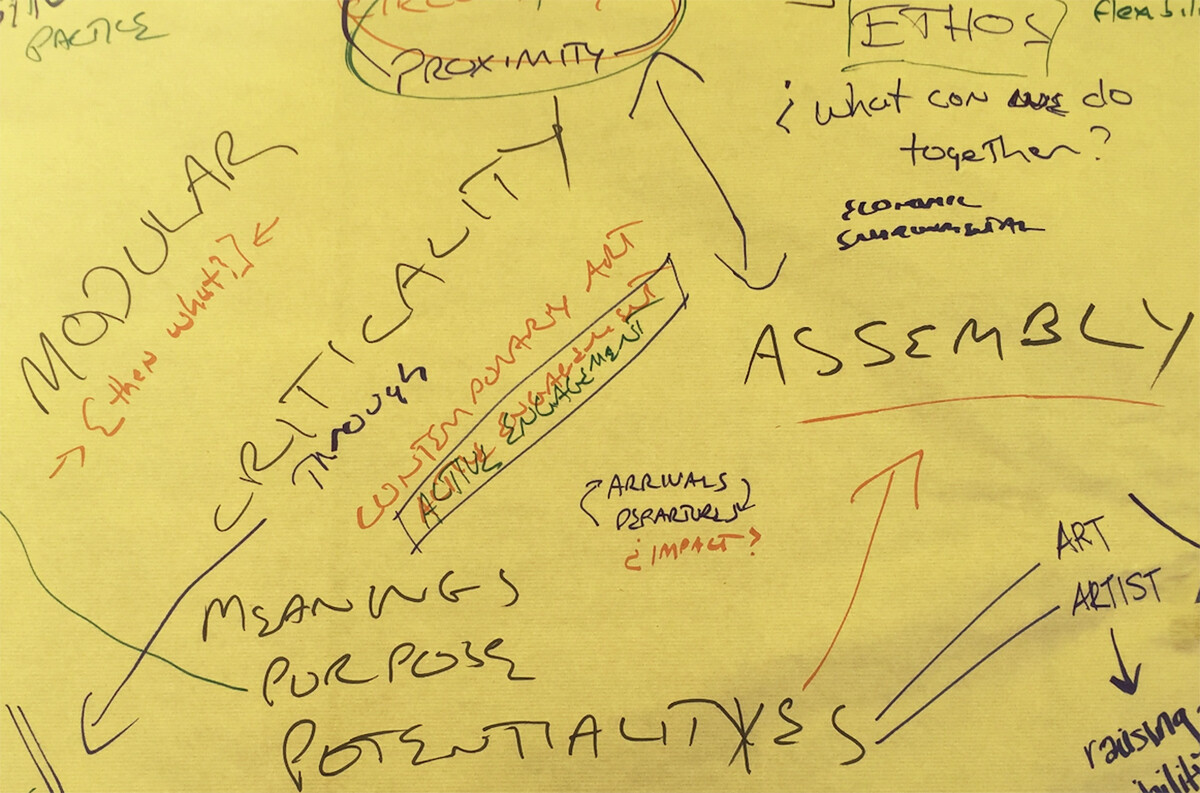 PACTICE
PROXIMITY
ETHOS
¿What can we do
together?
ECONOMIC
MODULAR
[then what?]
CRITICALITY
THROUGH
CONTEMPORARY ART
ACTIVE ENGAGEMENT
ASSEMBLY
(ARRIVALS)
DEPARTURES
¿IMPACT?
ART
ARTIST
MEANINGS
PURPOSE
POTENTIALITYES
raising